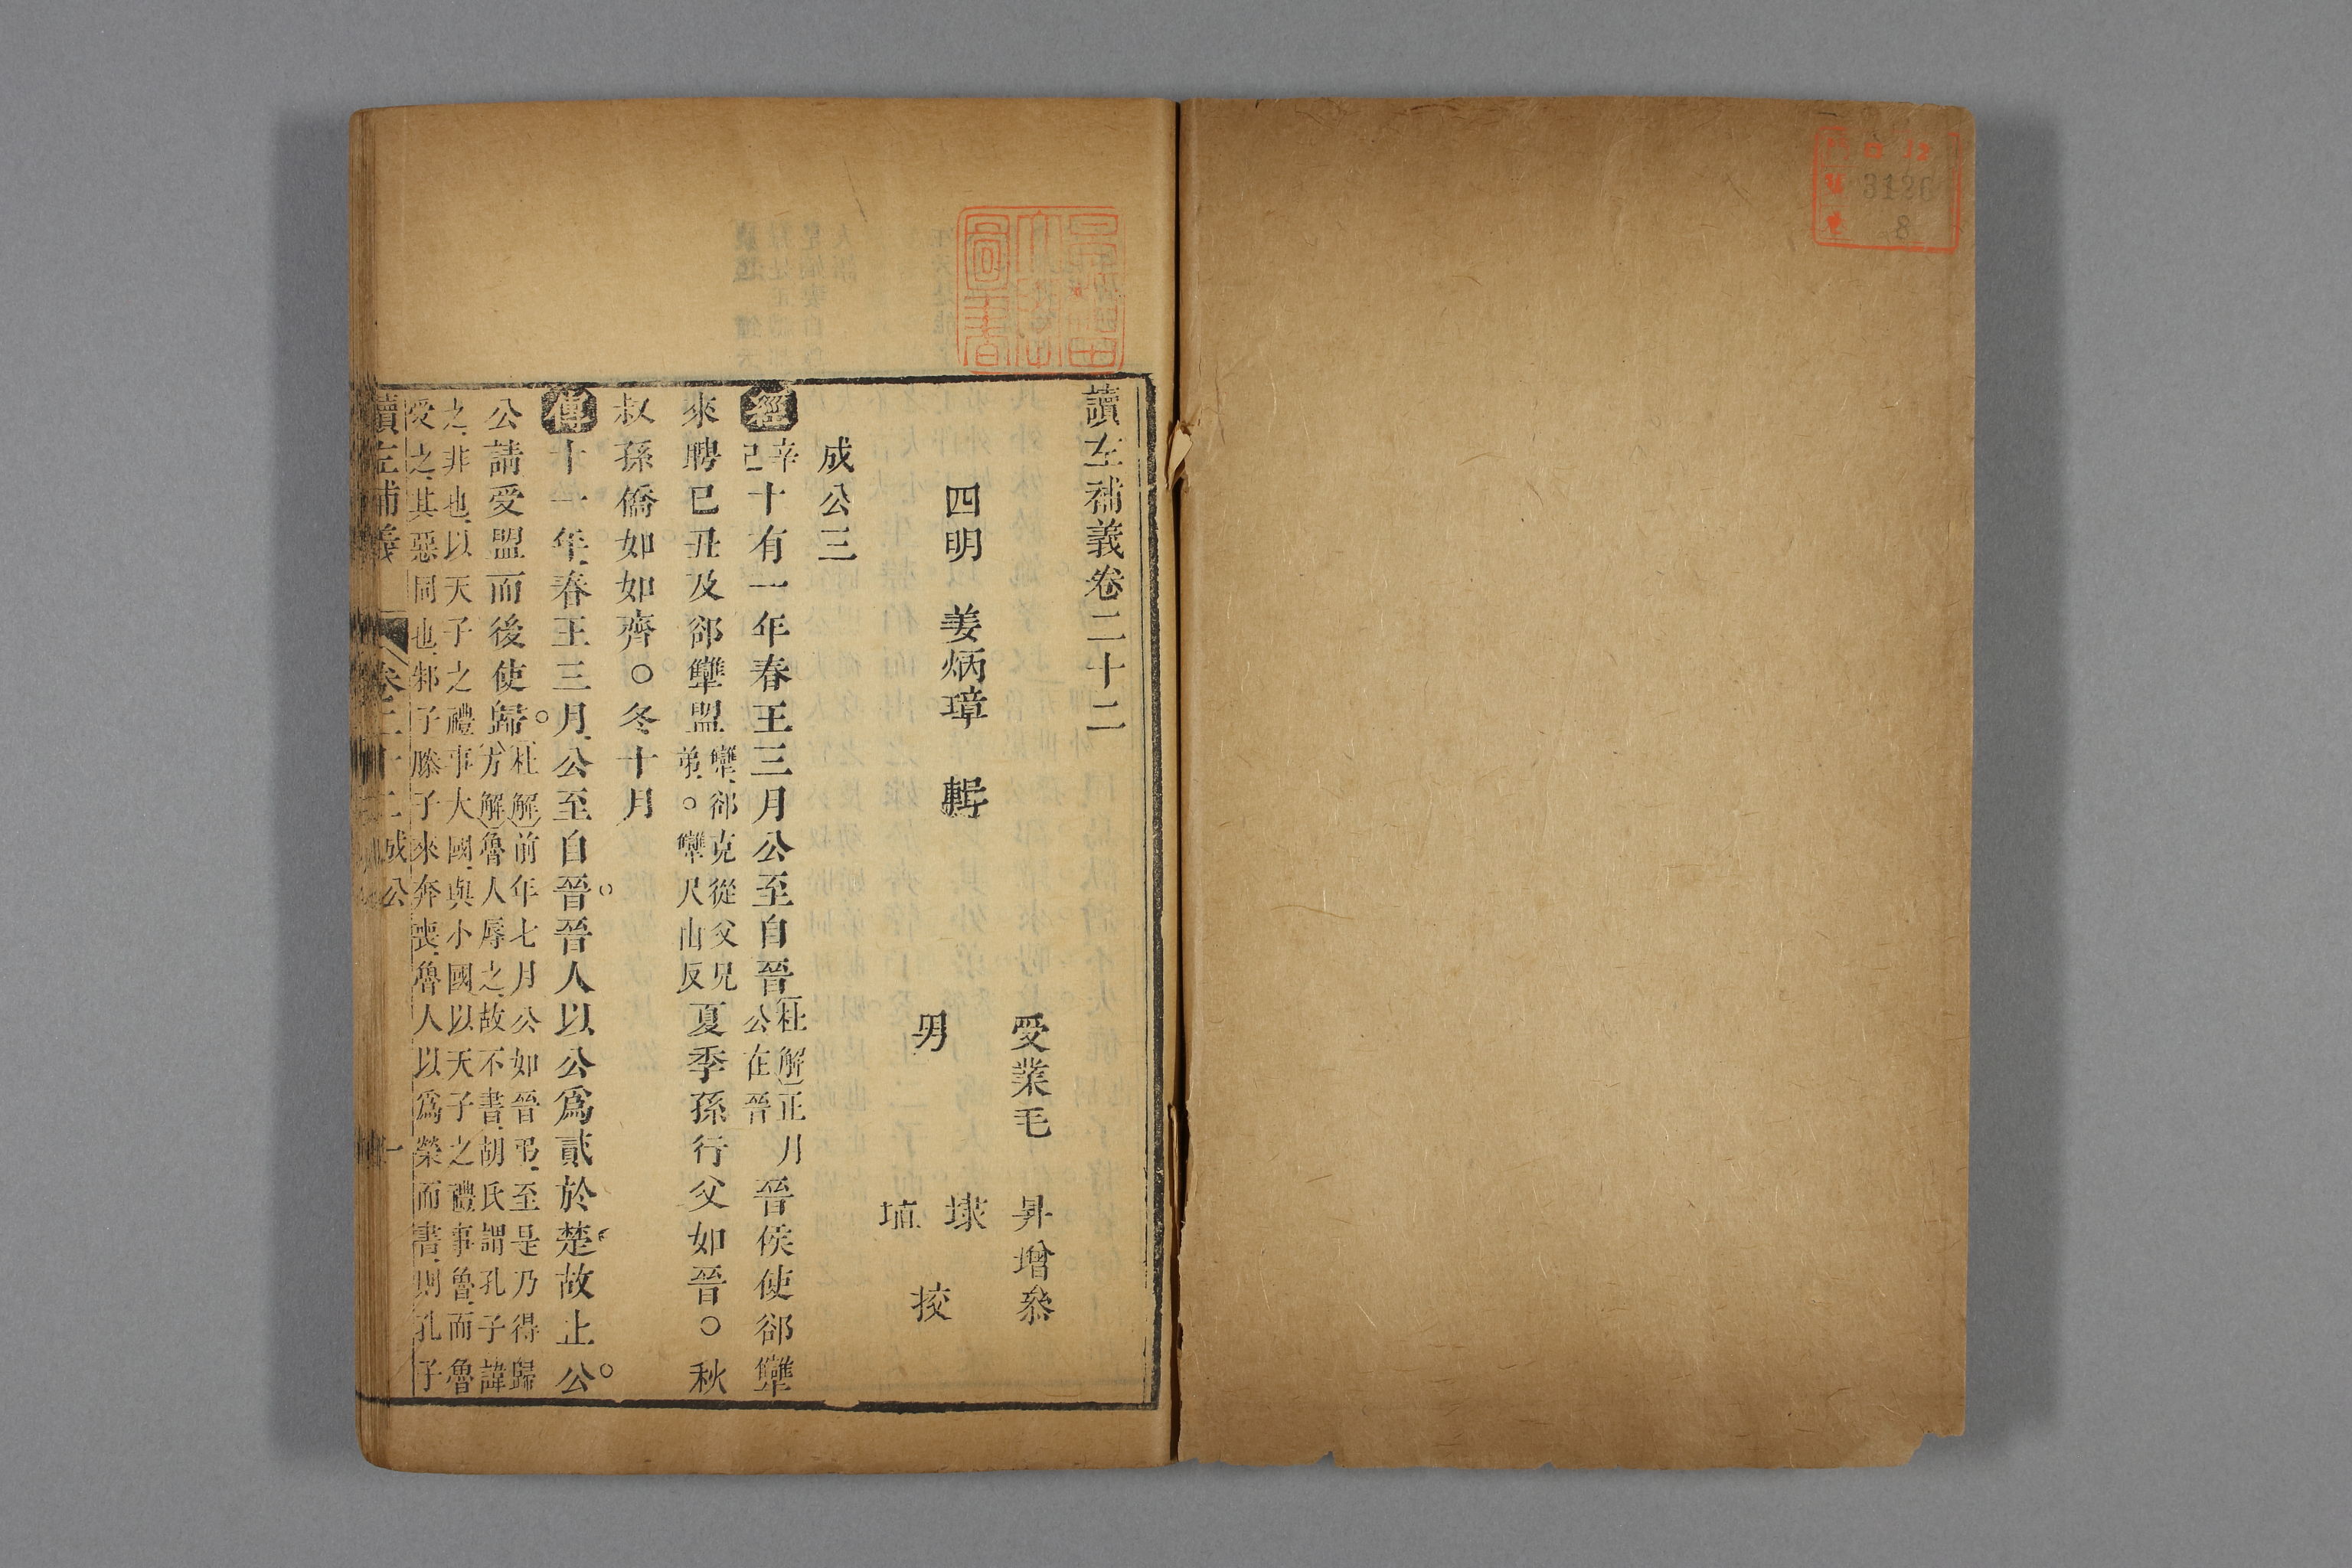 3126
8
讀左補義卷二十二
受業毛 昇增叅
四明 姜炳璋 輯
男 埭 埴 挍
成公三
經辛巳十有一年春王三月公至自晉杜解正月公在晉晉侯使郤犨
來聘已丑及郤犨盟犨郤克從父兄弟○犨尺由反夏季孫行父如晉○秋
叔孫僑如如齊○冬十月
傳十一年春王三月公至自晉晉人以公爲貳於楚故止公
公請受盟而後使歸杜解前年七月公如晉弔至是乃得歸
方解魯人辱之故不書胡氏謂孔子諱
之非也以天子之禮事大國與小國以天子之禮事魯而魯
受之其惡同也邾子滕子來奔喪魯人以爲榮而書則孔子
讀左補義 卷二十二 成公 一